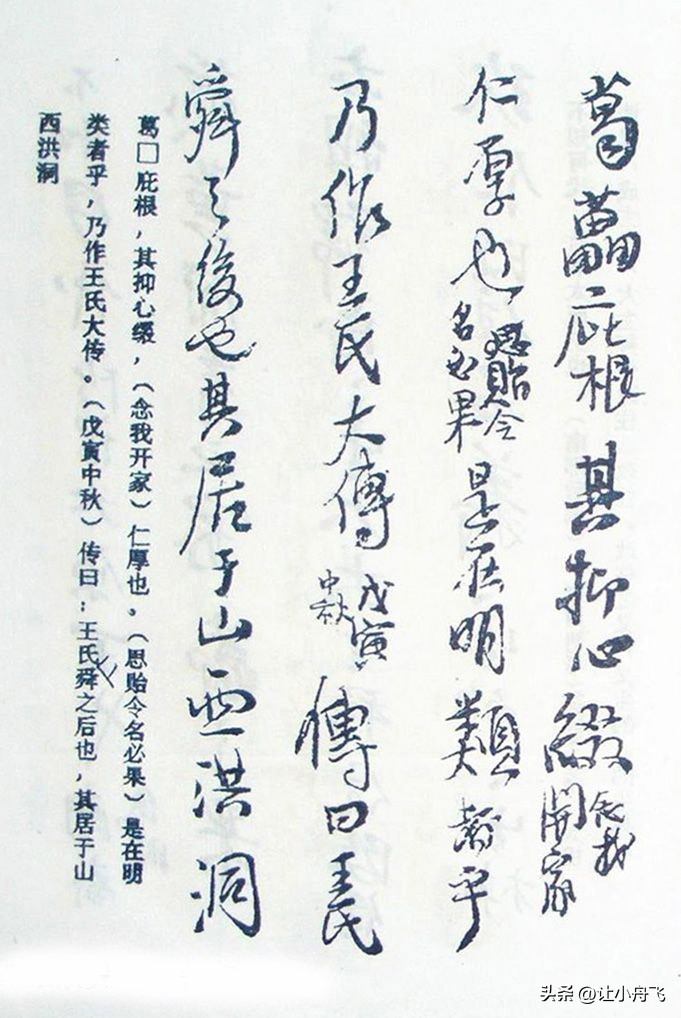 葛藟庇根其抑心綴念我開家
仁厚也思貽令名必果是在明類者乎
乃作王氏大傳戊寅中秋傳曰王氏
舜之後也其居于山西洪洞
葛□庇根，其抑心缀，（念我开家）仁厚也。（思贻令名必果）是在明
类者乎，乃作王氏大传。（戊寅中秋）传曰：王氏舜之后也，其居于山
西洪洞
头条 @让小舟飞